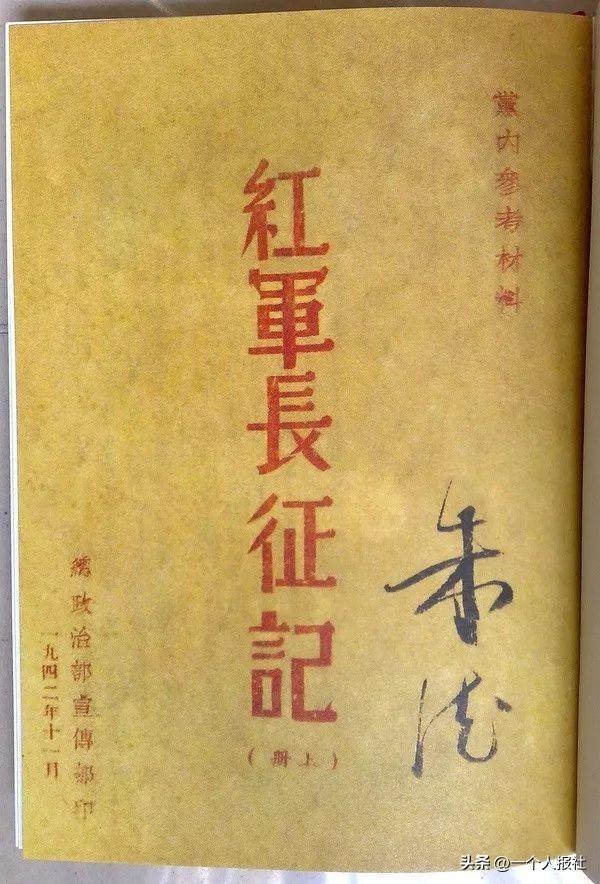 黨内參考材料
紅軍長征記
（上册）
朱德
總政治部宣傳部印
一九四二年十一月
头条 @一个人报社